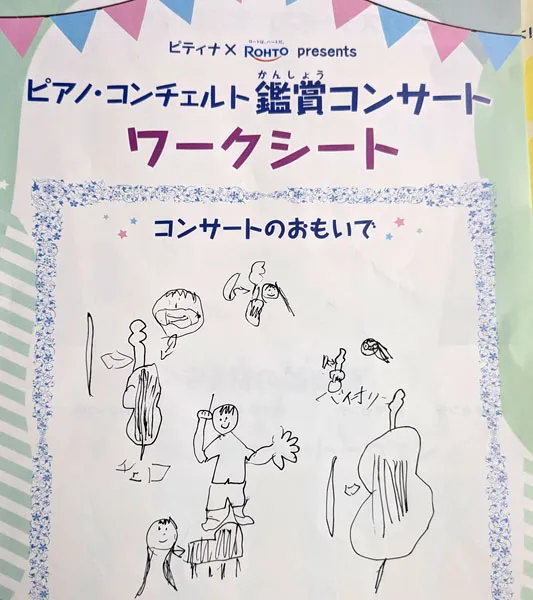 ピティナ× ハートは、ハートだ。 ROHTO presents
かんしょう
ピアノ・コンチェルト 鑑賞コンサート
ワークシート
コンサートのおもいで
バイオリン
チェロ